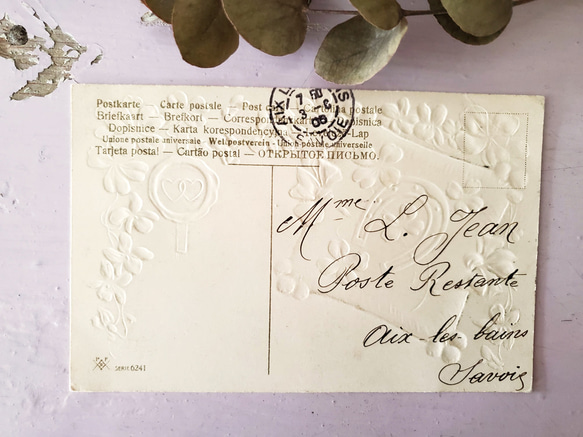 Postkarte — Carte postale — Post — Cartolina postale
Briefkaart — Brefkort — Correspond
Dopisnice — Karta korespondencyjna — Lap
Unione postale universale Weltpostverein - Union postale universelle
Tarjeta postal — Cartão postal — ОТКРЫТОЕ ПИСЬМО.
AIX L S
7
3 - 6
06
SAVOIE
Mme L. Jean
Poste Restante
Aix-les-bains
Savoie
SERIE 6241